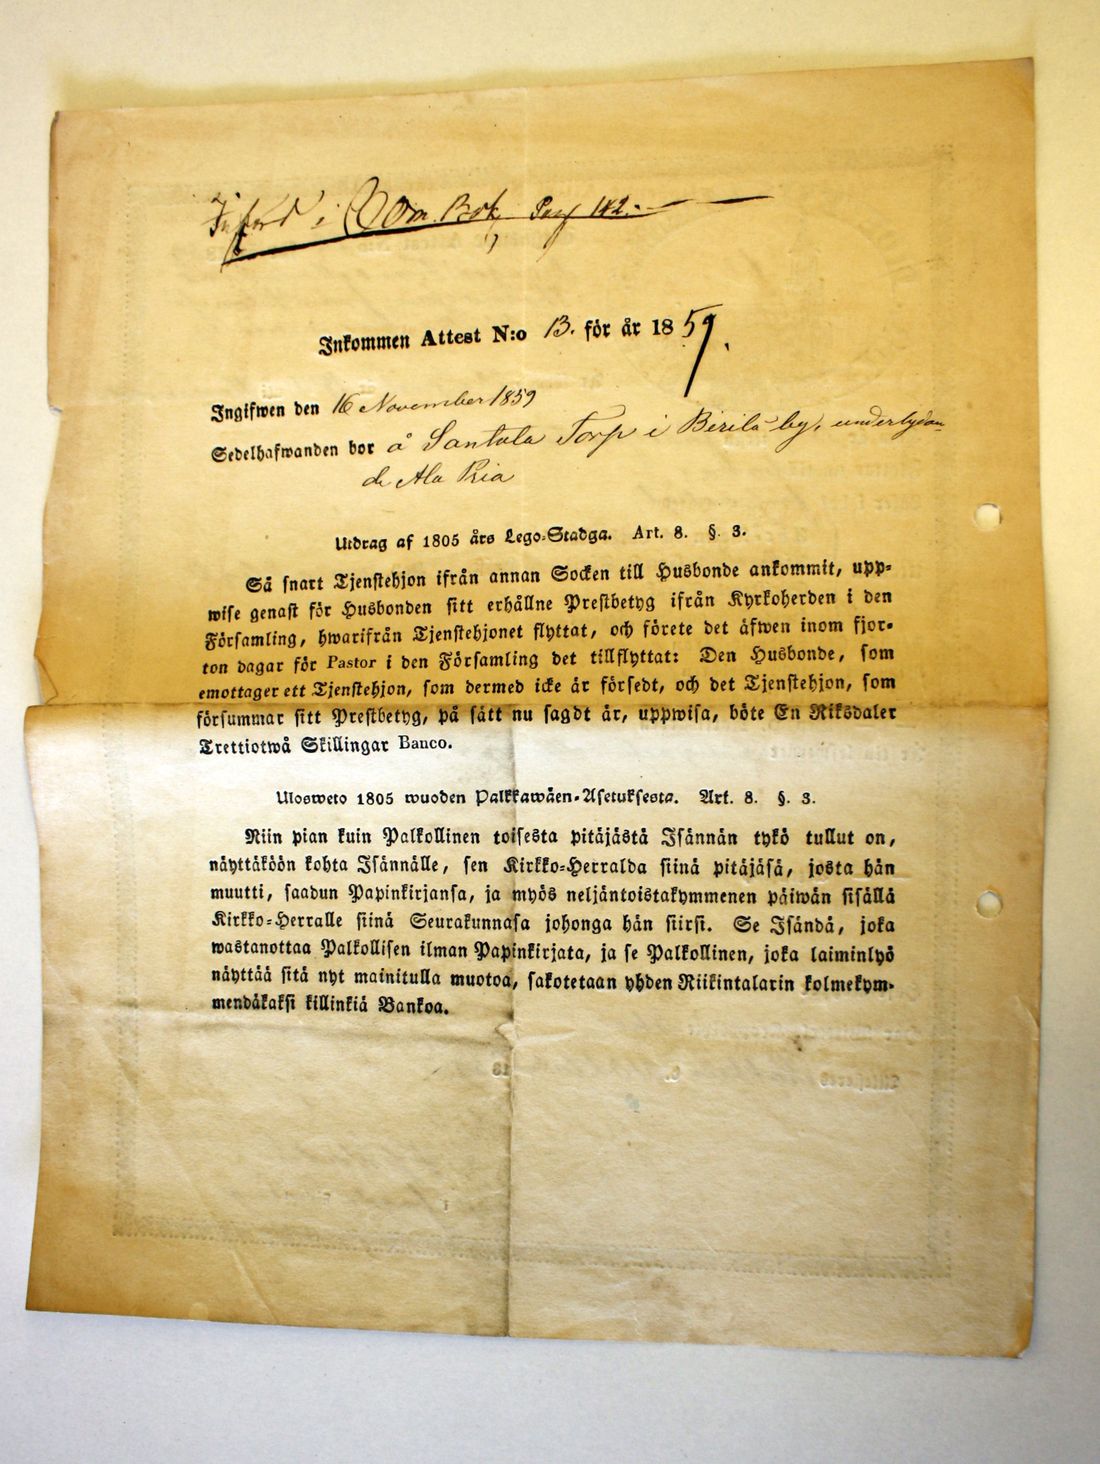 Införd i Com. Bok, Pag 142.
Inkommen Attest N:o 13. för år 1859.
Ingifwen den 16 November 1859
Sedelhafwanden bor å Santala Torp i Berila by, underlydan-
de Ala Pria
Utdrag af 1805 års Lego-Stadga. Art. 8. §. 3.
Så snart Tjenstehjon ifrån annan Socken till Husbonde ankommit, upp-
wise genast för Husbonden sitt erhållne Prestbetyg ifrån Kyrkoherden i den
Församling, hwarifrån Tjenstehjonet flyttat, och förete det äfwen inom fjor-
ton dagar för Pastor i den Församling det tillflyttat: Den Husbonde, som
emottager ett Tjenstehjon, som dermed icke är försedt, och det Tjenstehjon, som
försummar sitt Prestbetyg, på sätt nu sagdt är, uppwisa, böte En Riksdaler
Trettiotwå Skillingar Banco.
Ulosweto 1805 wuoden Palkkawäen-Asetuksesta. Art. 8. §. 3.
Niin pian kuin Palkollinen toisesta pitäjästä Isännän tykö tullut on,
näyttäköön kohta Isännälle, sen Kirkko-Herralda siinä pitäjäsä, josta hän
muutti, saadun Papinkirjansa, ja myös neljäntoistakymmenen päiwän sisällä
Kirkko-Herralle siinä Seurakunnasa johonga hän siirsi. Se Isändä, joka
wastanottaa Palkollisen ilman Papinkirjata, ja se Palkollinen, joka laiminlyö
näyttää sitä nyt mainitulla muotoa, sakotetaan yhden Riikintalarin kolmekym-
mendäkaksi killinkiä Bankoa.